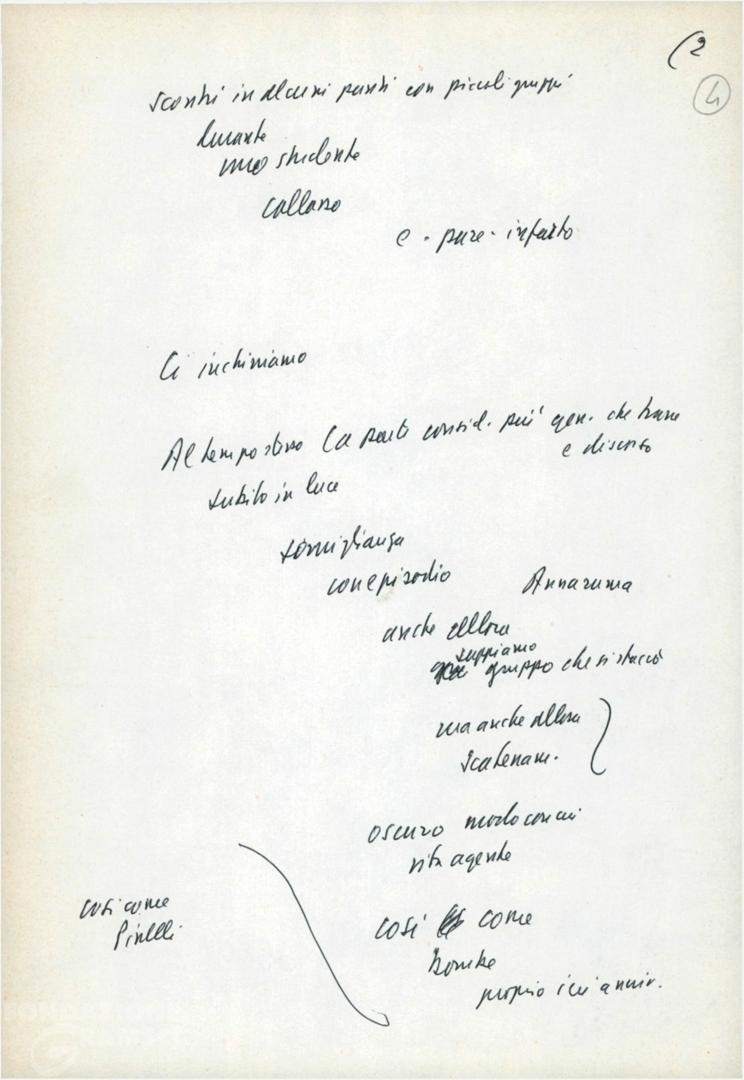 (2
4
scontri in alcuni punti con piccoli gruppi
durante
uno studente
collasso
e - pare - infarto
Ci inchiniamo
Al tempo stesso consid. più gen. che trarre
e discorso
subito in luce
somiglianza
con episodio Annaruma
anche allora
sappiamo
gruppo che si staccò
ma anche allora
scatenam.
oscuro modo con cui
vita agente
così come
Pinelli
così come
bombe
proprio anniv.